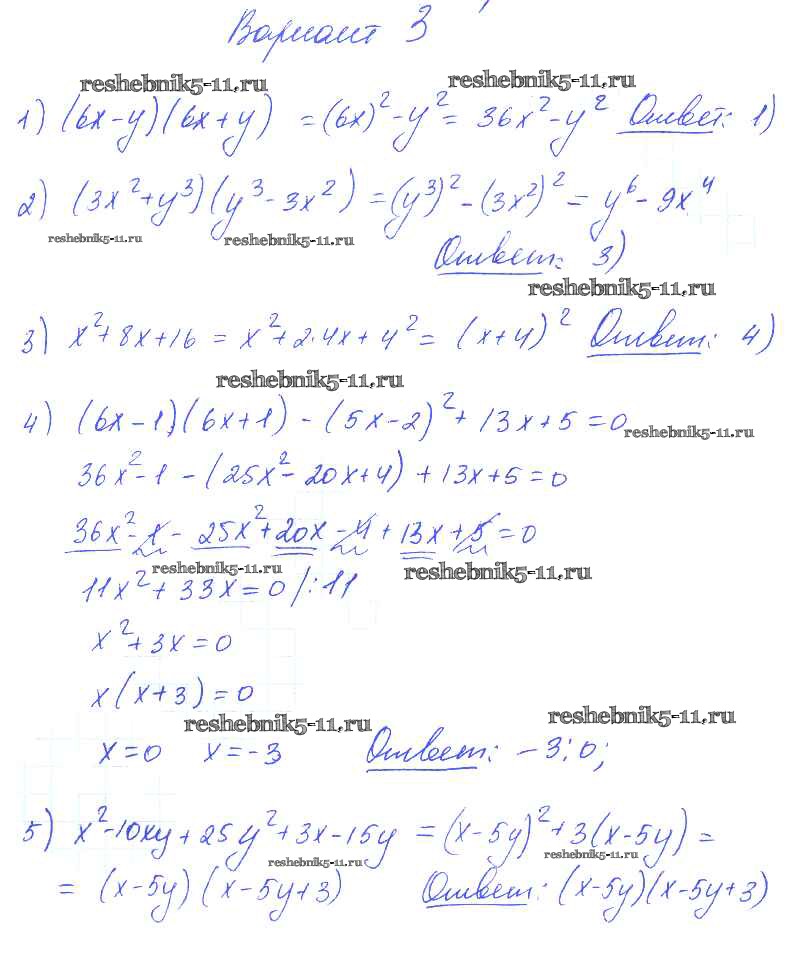 Вариант 3
reshebnik5-11.ru reshebnik5-11.ru
1) (6x-y)(6x+y) = (6x)²-y² = 36x²-y² Ответ: 1)
2) (3x²+y³)(y³-3x²) = (y³)²-(3x²)² = y⁶-9x⁴
reshebnik5-11.ru reshebnik5-11.ru
Ответ: 3)
reshebnik5-11.ru
3) x²+8x+16 = x²+2·4x+4² = (x+4)² Ответ: 4)
reshebnik5-11.ru
4) (6x-1)(6x+1)-(5x-2)²+13x+5=0
reshebnik5-11.ru
36x²-1-(25x²-20x+4)+13x+5=0
36x²-1-25x²+20x-4+13x+5=0
reshebnik5-11.ru reshebnik5-11.ru
11x²+33x=0 /:11
x²+3x=0
x(x+3)=0
reshebnik5-11.ru reshebnik5-11.ru
x=0 x=-3 Ответ: -3; 0;
5) x²-10xy+25y²+3x-15y = (x-5y)²+3(x-5y) =
reshebnik5-11.ru reshebnik5-11.ru
= (x-5y)(x-5y+3) Ответ: (x-5y)(x-5y+3)